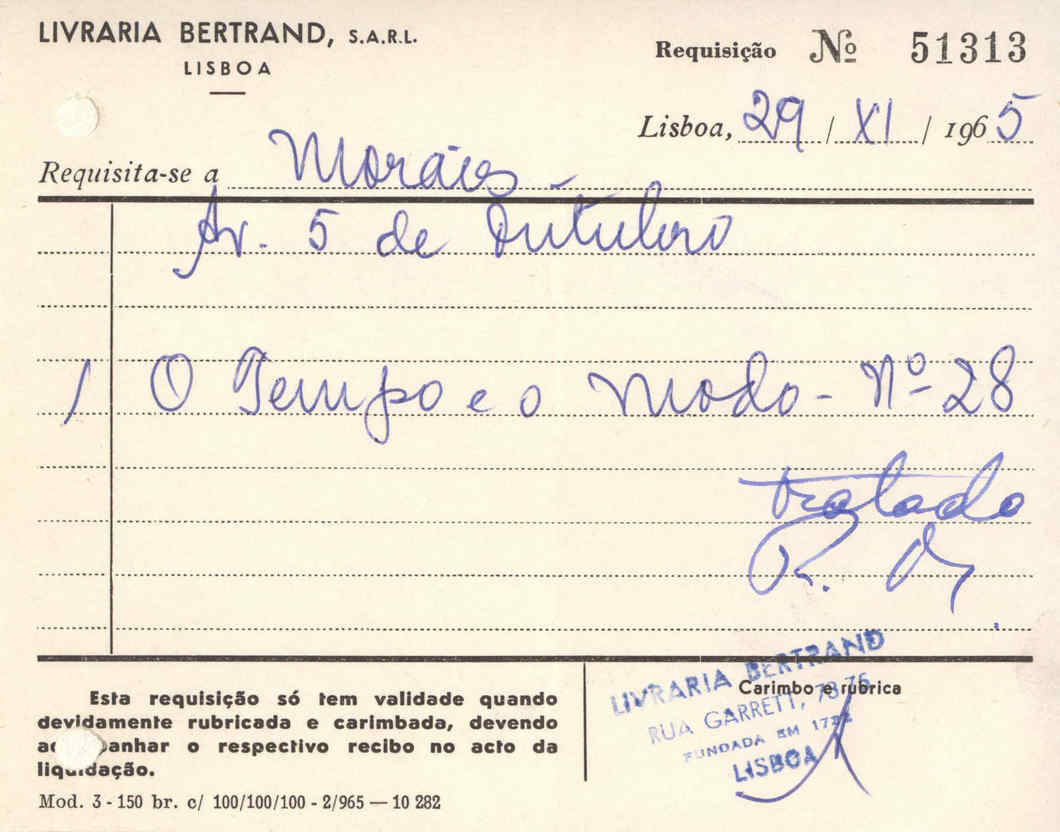 LIVRARIA BERTRAND, S.A.R.L.
LISBOA
Requisição Nº 51313
Lisboa, 29 / XI / 1965
Requisita-se a Morais
Av. 5 de Outubro
1 O Tempo e o Modo - Nº 28
tratado
Esta requisição só tem validade quando
devidamente rubricada e carimbada, devendo
o respectivo recibo no acto da
liquidação.
Mod. 3 - 150 br. c/ 100/100/100 - 2/965 — 10 282
Carimbo e rubrica
LIVRARIA BERTRAND
RUA GARRETT, 73-75
FUNDADA EM
LISBOA